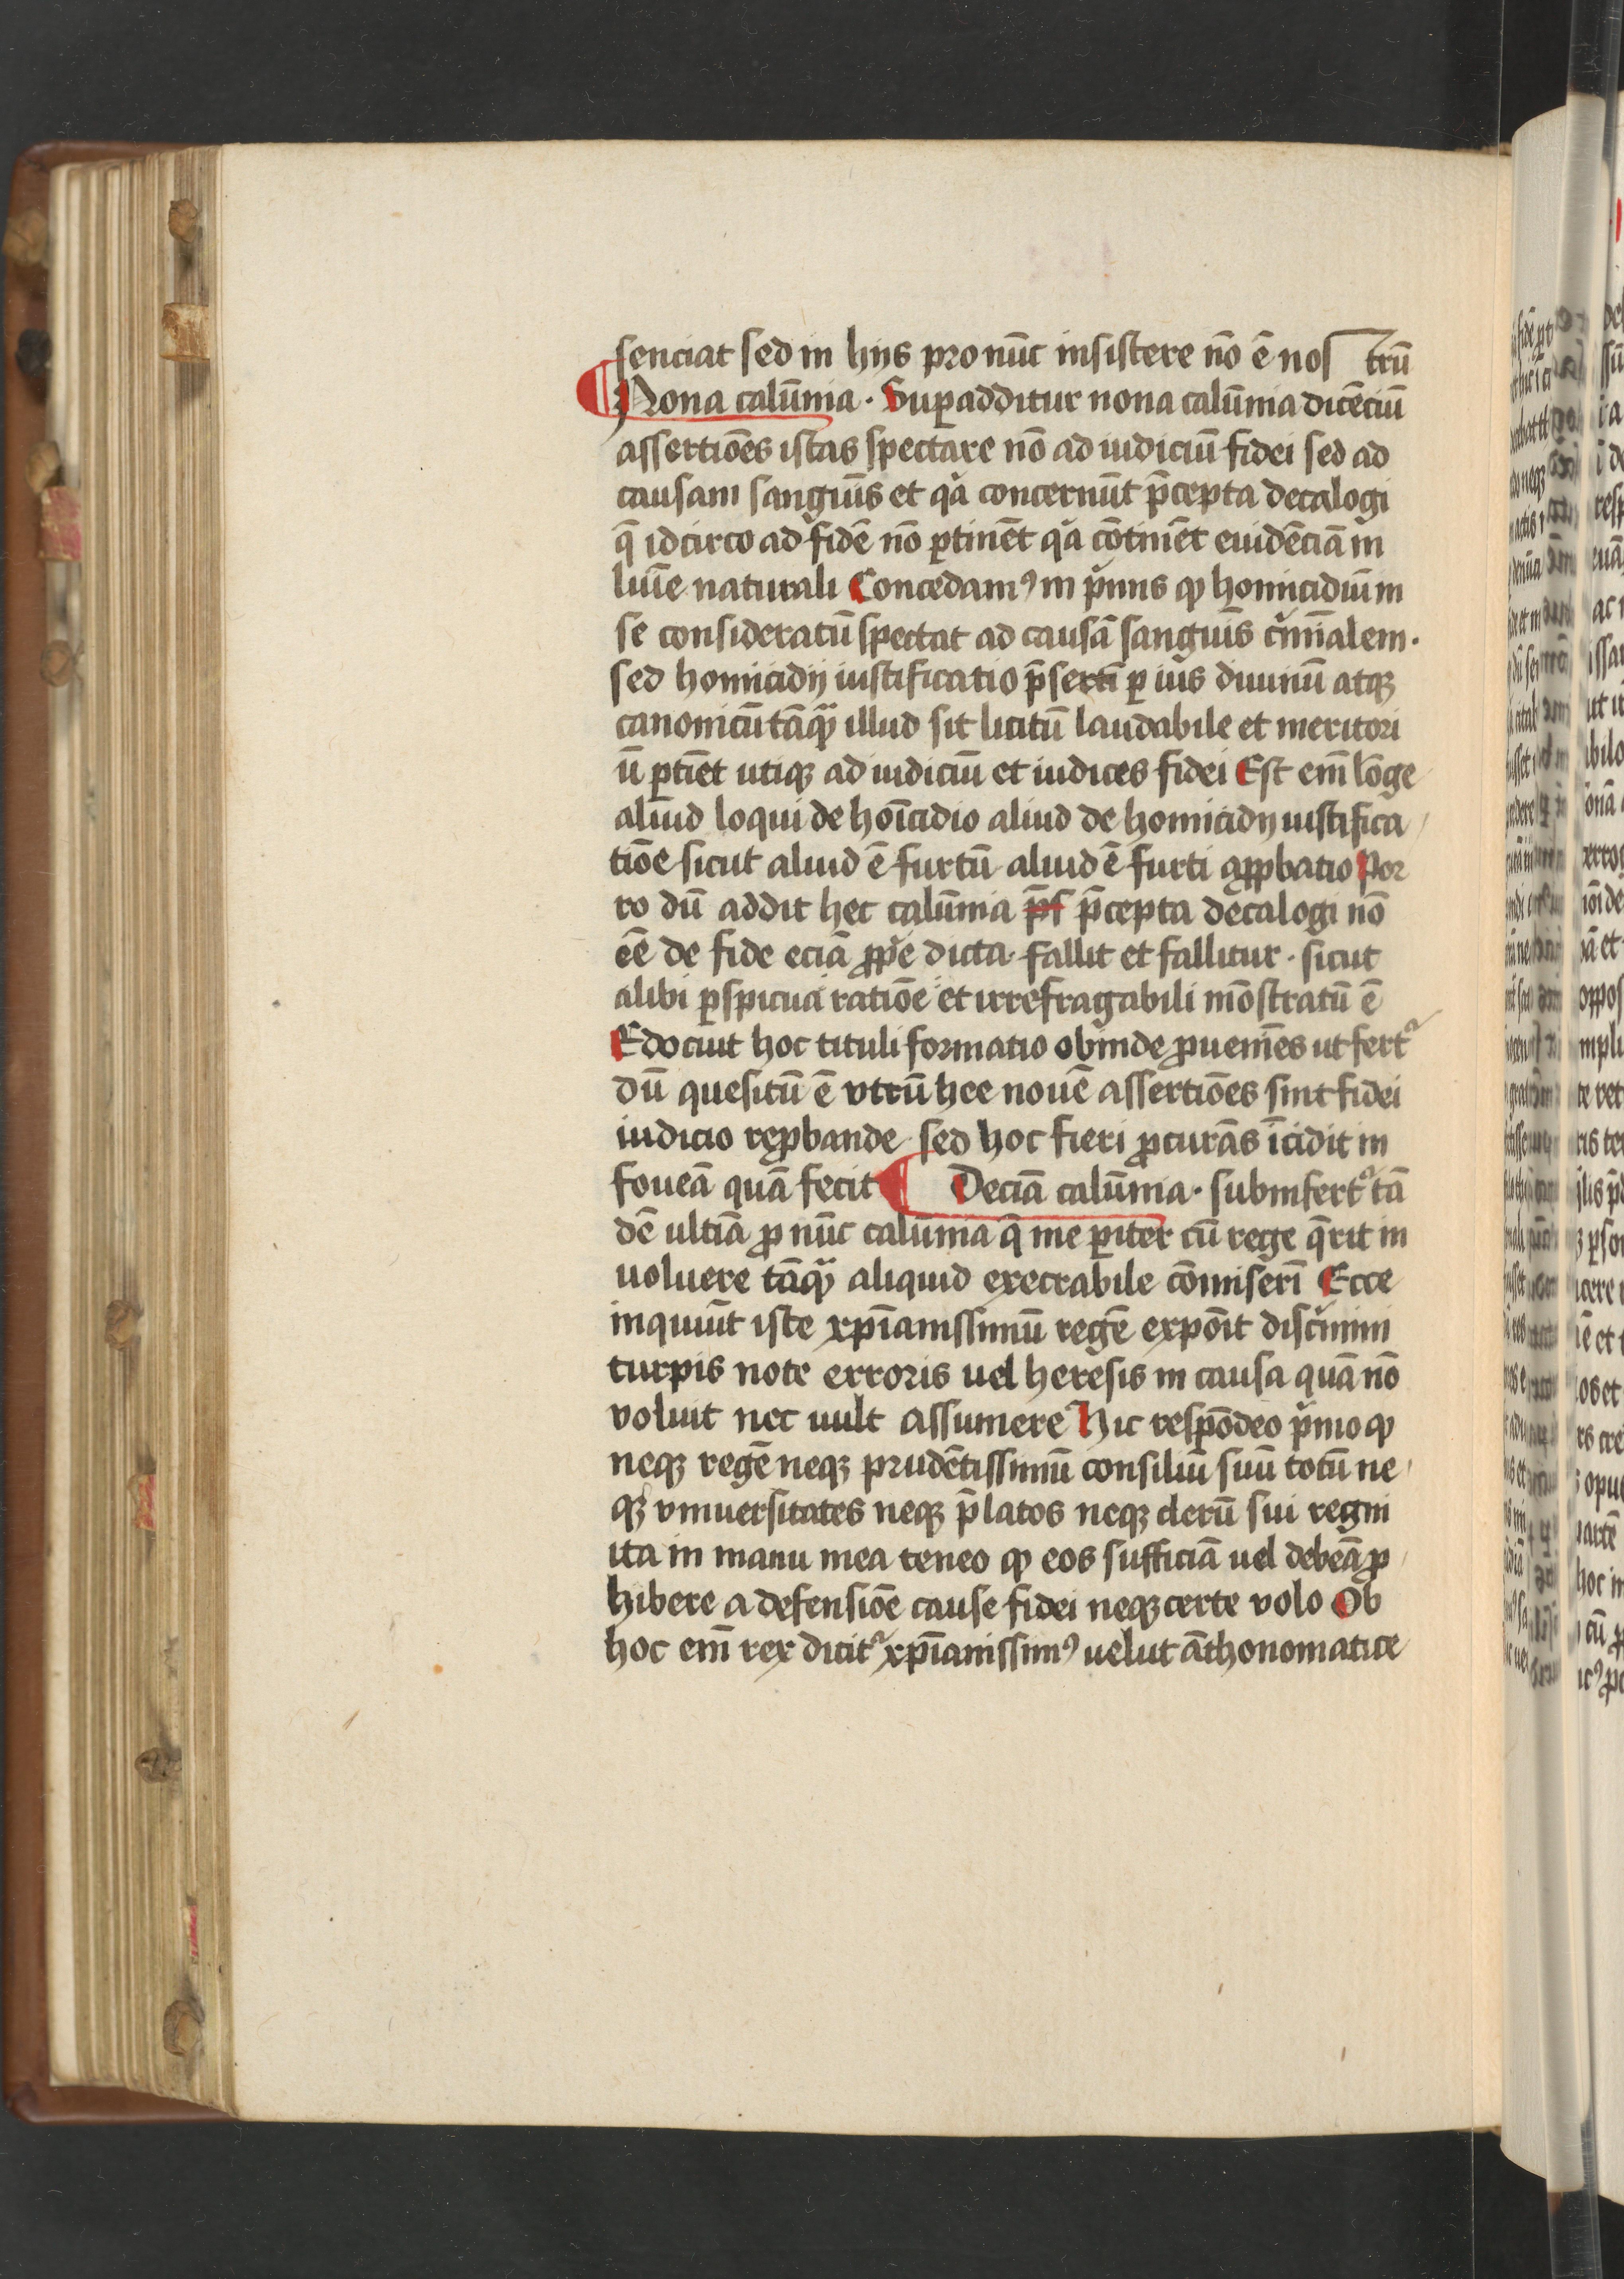 senciat sed in hijs pro nūc insistere nō ē nos trū
Nona calūnia · Suꝑadditur nona calūnia dicēciū
assertiōes istas spectare nō ad iudiciū fidei sed ad
causam sanguīs et qͣ concernūt p̄cepta decalogi
q̄ idcirco ad fidē nō ꝑtinēt qͣ cōtinēt euidēciā in
lumīe naturali Concedamꝰ in pͥmis ꝙ homicidiū in
se consideratū spectat ad causā sanguīs cͥmīalem ·
sed homicidij iustificatio p̄sertī ꝑ ius diuinū atqꝫ
canonicū tāqͣꝫ illud sit licitū laudabile et meritori
ū ꝑtīet utiqꝫ ad iudiciū et iudices fidei Est em̄ lōge
aliud loqui de hoīcidio aliud de homicidij iustifica
tiōe sicut aliud ē furtū aliud ē furti apꝓbatio Por
ro dū addit hec calūnia p̄s p̄cepta decalogi nō
eē de fide eciā ꝓpͥe dicta · fallit et fallitur · sicut
alibi ꝑspicua ratiōe et irrefragabili mōstratū ē
Edocuit hoc tituli formatio obinde ꝓueniēs ut fert᷑
dū quesitū ē vtrū hee nouē assertiōes sint fidei
iudicio reꝓbande · sed hoc fieri ꝓcurās īcidit in
foueā quā fecit Decīa calūnia · subinfert᷑ tā
dē ultīa ꝓ nūc calūnia q̄ me ꝑiter cū rege q̄rit in
uoluere tāqͣꝫ aliquid execrabile cōmiserī Ecce
inquiūt iste xp̄ianissimū regē expōit discͥmini
turpis note erroris uel heresis in causa quā nō
voluit nec uult assumere Hic respōdeo pͥmo ꝙ
neqꝫ regē neqꝫ prudētissimū consiliū suū totū ne
qꝫ vniuersitates neqꝫ p̄latos neqꝫ clerū sui regni
ita in manu mea teneo ꝙ eos sufficiā uel debeā ꝓ
hibere a defensiōe cause fidei neqꝫ certe volo Ob
hoc em̄ rex dicit᷑ xp̄ianissimꝰ uelut āthonomatice